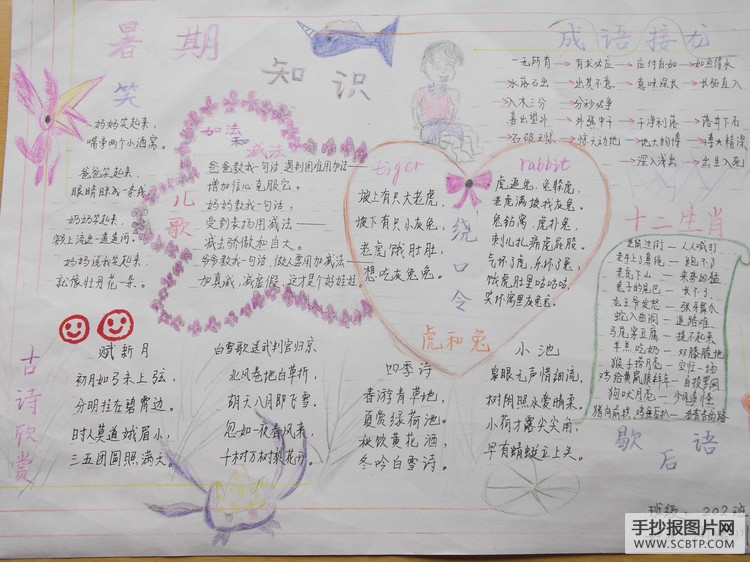 暑期
知识
笑
妈妈笑起来,
嘴角两个小酒窝。
爸爸笑起来,
眼睛眯成一条线。
奶奶笑起来,
妈妈说我笑起来
就像牡丹花一朵。
儿歌
加法和
减法
爸爸教我一句话,遇到困难用加法——
增加信心克服它。
妈妈教我一句话,
受到表扬用减法——
减去骄傲和自大。
爷爷教我一句话,做人要用加减法——
加真诚,减虚假,这才是个好娃娃。
tiger
rabbit
坡上有只大老虎,
坡下有只小灰兔,
老虎饿肚肚,
想吃灰兔兔。
绕口令
虎追兔,兔躲虎,
老虎满坡找灰兔。
兔钻窝,虎扑兔,
刺儿扎痛虎屁股。
气坏了虎,乐坏了兔,
饿虎肚里咕咕咕,
笑坏窝里灰兔兔。
虎和兔
成语接龙
一无所有→有求必应→应付自如→如鱼得水
水落石出→出其不意→意味深长→长驱直入
→入木三分→分秒必争
喜出望外→外强中干→干净利落→落井下石
→石破天惊→惊天动地→地大物博→博大精深
→深入浅出→出生入死
十二生肖
老鼠过街——人人喊打
老虎下山——来势凶猛
兔子的尾巴——长不了
龙王爷发怒——张牙舞爪
蛇入曲洞——退路难
马尾穿豆腐——提不起来
羊羔吃奶——双膝跪地
猴子捞月亮——空忙一场
鸡给黄鼠狼拜年——自投罗网
狗吠月亮——少见多怪
歇后语
古诗欣赏
赋新月
初月如弓未上弦,
分明挂在碧霄边。
时人莫道蛾眉小,
三五团圆照满天。
白雪歌送武判官归京
北风卷地白草折,
胡天八月即飞雪。
忽如一夜春风来,
千树万树梨花开。
四季诗
春游芳草地,
夏赏绿荷池。
秋饮黄花酒,
冬吟白雪诗。
小池
泉眼无声惜细流,
树阴照水爱晴柔。
小荷才露尖尖角,
早有蜻蜓立上头。
班级:202班
手抄报图片网
WWW.SCBTP.COM